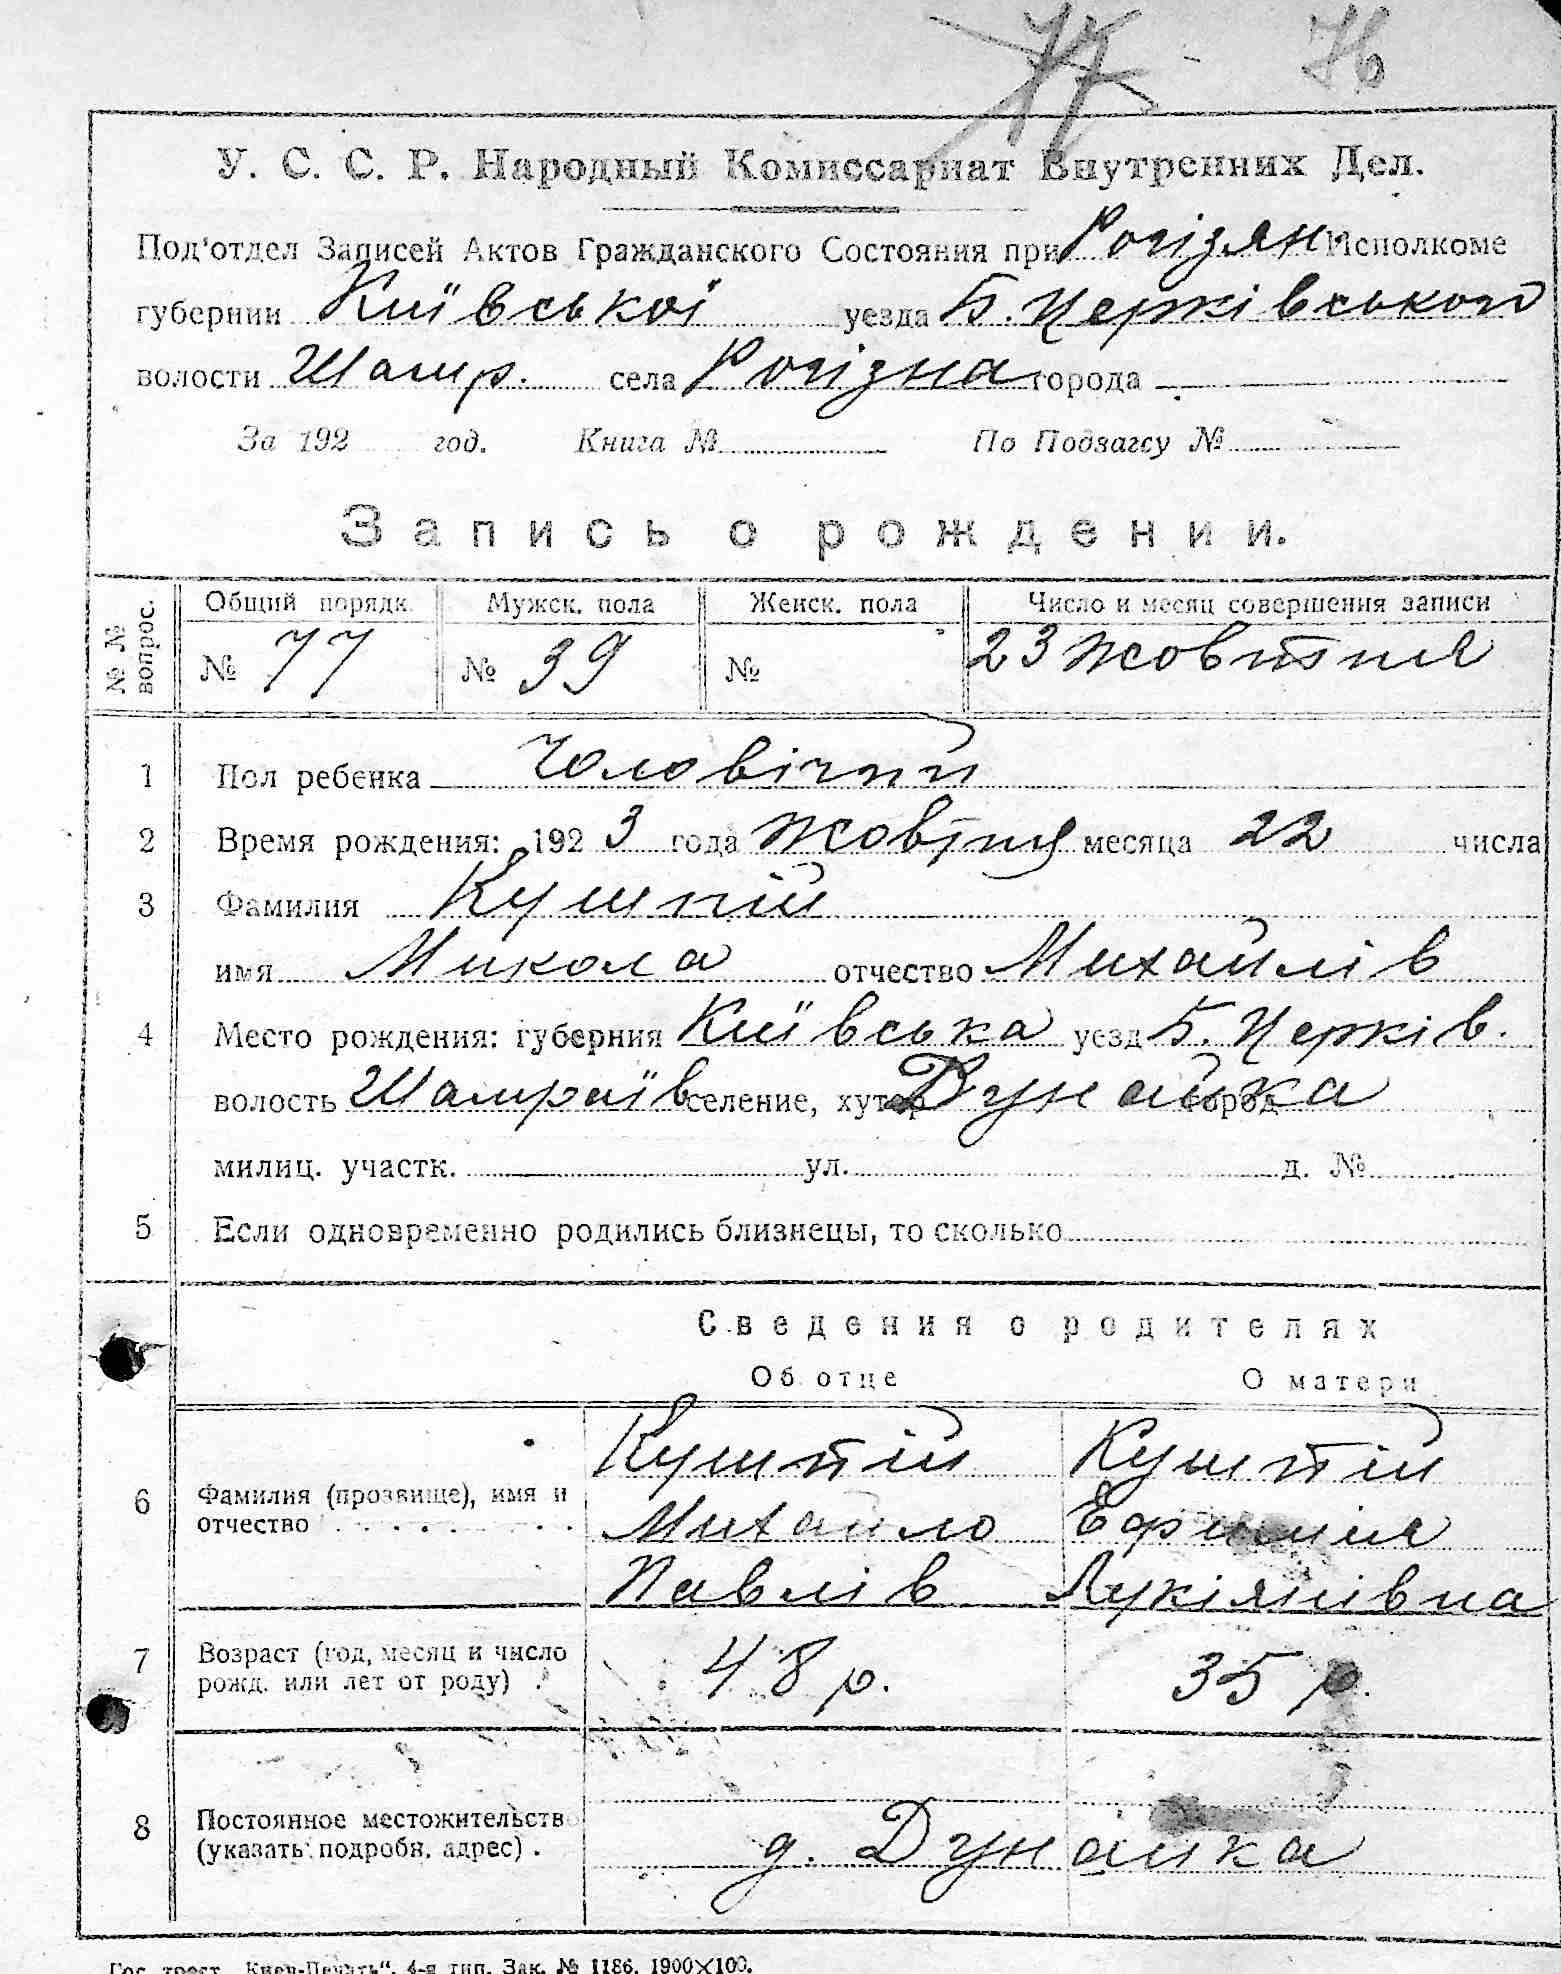 77 76
У. С. С. Р. Народный Комиссариат Внутренних Дел.
Под'отдел Записей Актов Гражданского Состояния при Рогізян. Исполкоме
губернии Київської уезда Б. Церківського
волости Шамр. села Рогізна города
За 192 год. Книга № По Подзагсу №
Запись о рождении.
№ № вопрос.
Общий порядк. Мужск. пола Женск. пола Число и месяц совершения записи
№ 77 № 39 № 23 жовтня
1 Пол ребенка Чоловічий
2 Время рождения: 1923 года жовтня месяца 22 числа
3 Фамилия Кушпій
имя Микола отчество Михайлів
4 Место рождения: губерния Київська уезд Б. Церків.
волость Шамраїв селение, хутор Дунайка город
милиц. участк. ул. д. №
5 Если одновременно родились близнецы, то сколько
Сведения о родителях
Об отце О матери
Кушпій Кушпій
6 Фамилия (прозвище), имя и отчество Михайло Ефимия
Павлів Лукіянівна
7 Возраст (год, месяц и число рожд. или лет от роду) 48 р. 35 р.
8 Постоянное местожительств
(указать подробн. адрес) . д. Дунайка
Гос. трест „Киев-Печать“. 4-я тип. Зак. № 1186. 1900×100.